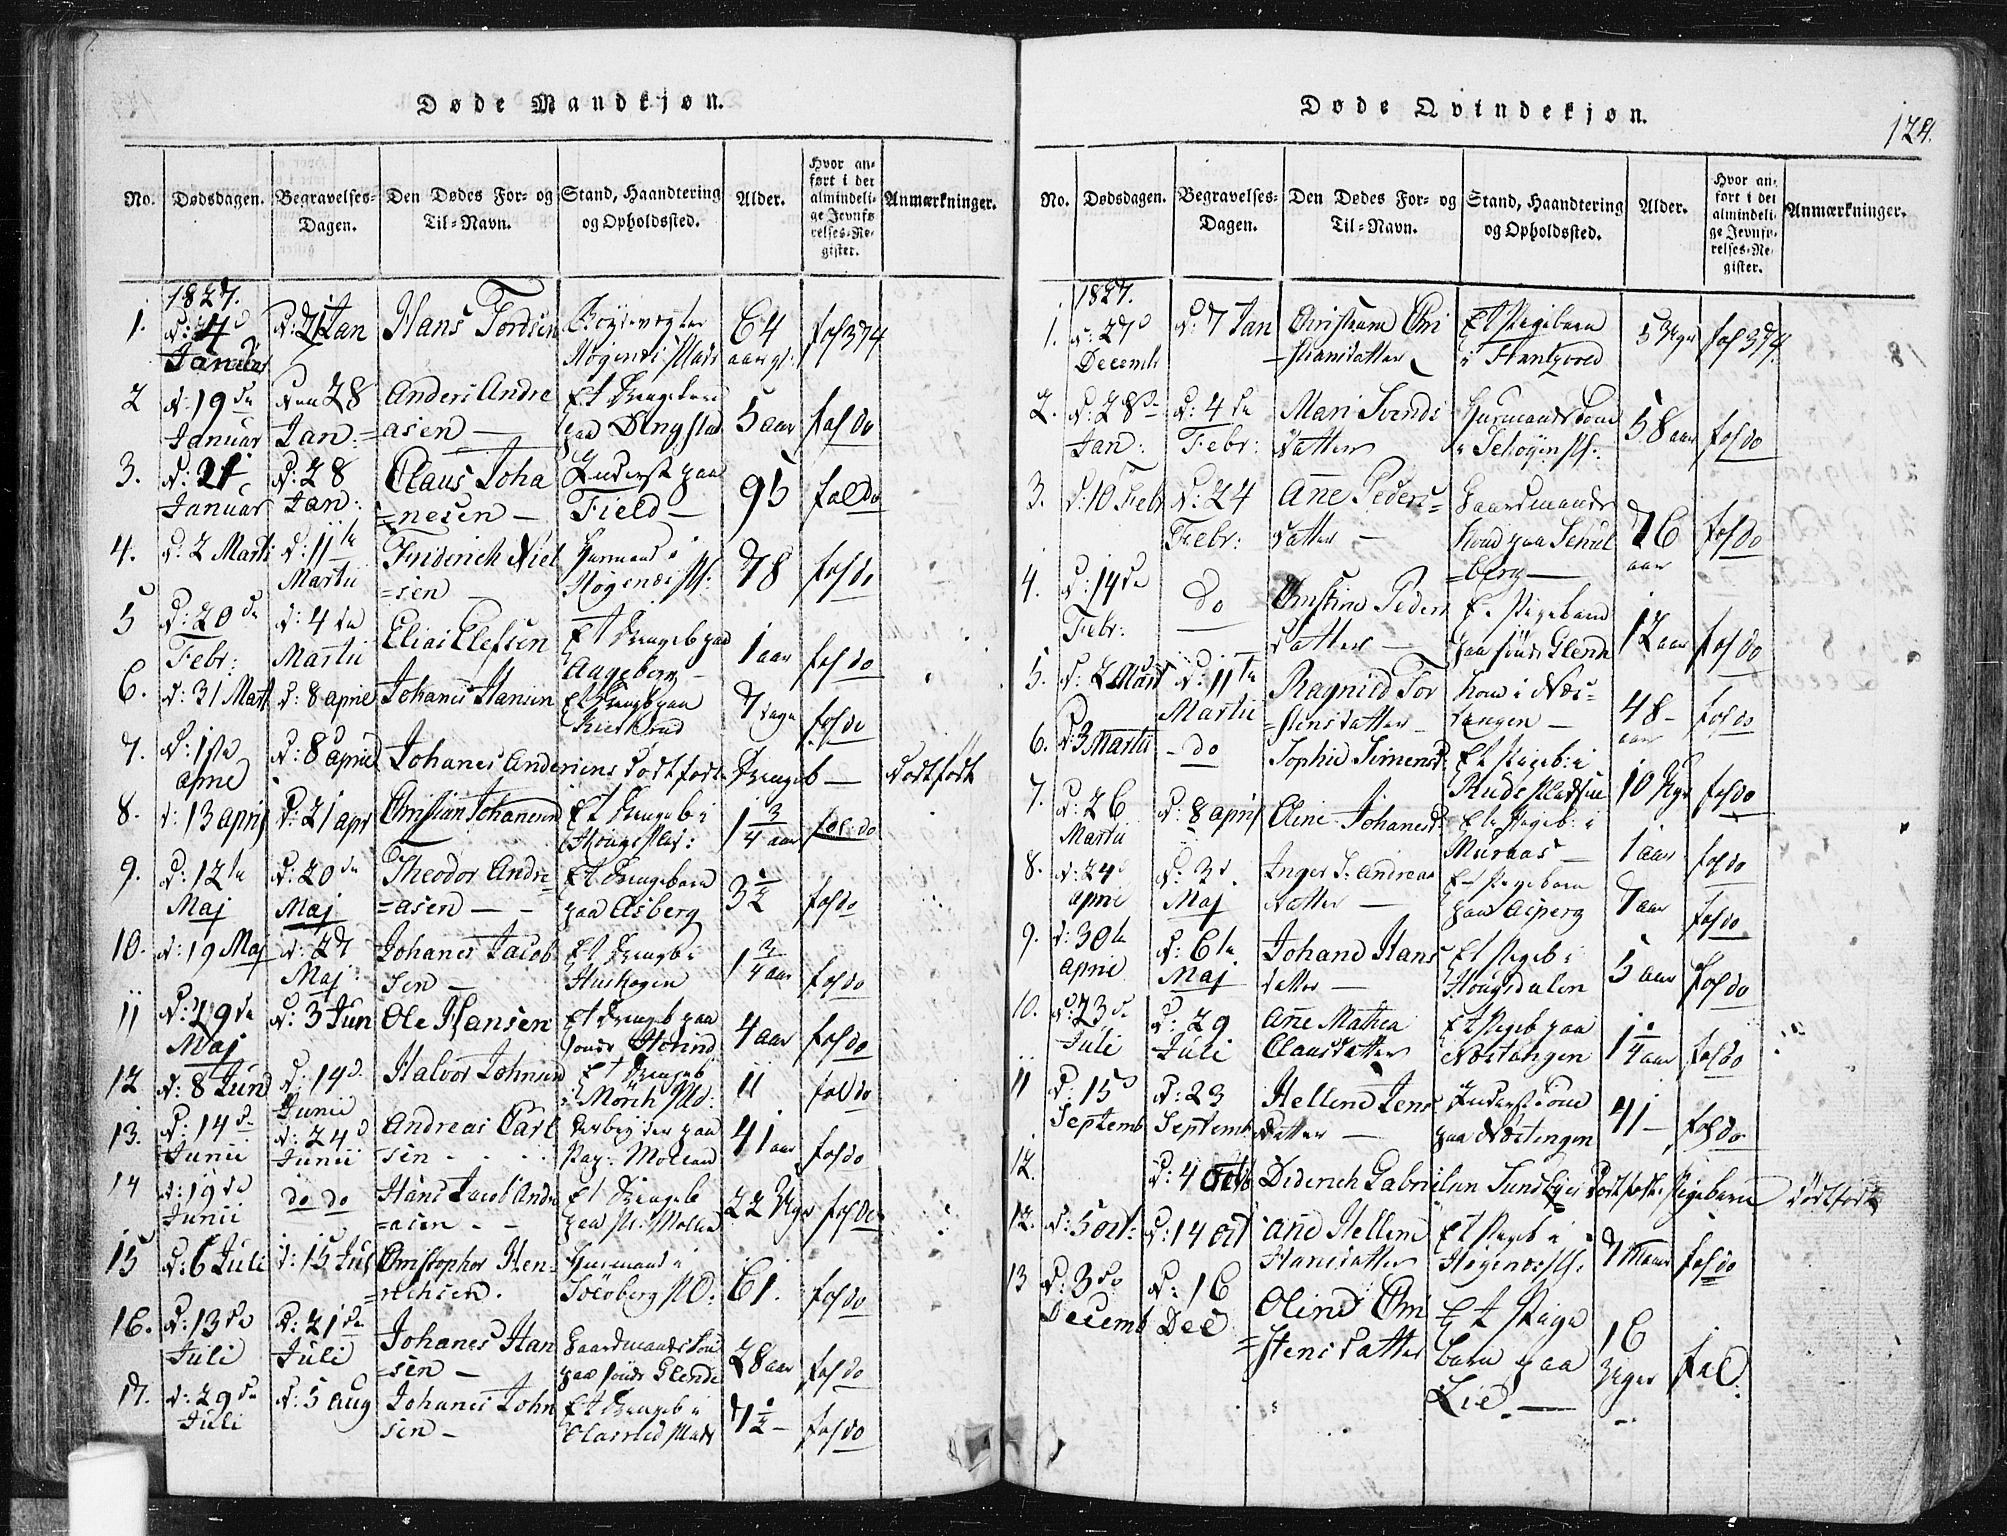 Døde Mandkjøn.
No. Dødsdagen. Begravelses-Dagen. Den Dødes For- og Til-Navn. Stand, Haandtering og Opholdssted. Alder. Hvor anført i det almindelige Jevnførelses-Register. Anmærkninger.
1827.
1. d: 4d Januar d: 21 Jan Hans Tordsen Høgenæs Plads 64 aar gl: fol 374
2 d: 19de Januar den 28 Jan: Anders Andre=asen — Et Drengebarn paa Dingstad 5 aar fol do
3. d: 21 Januar d: 28 Jan: Claus Joha=nesen — Inderst paa Field — 95 fol do
4. d: 2 Marti d: 11te Martii Friderich Niel=sen — Huusmand i Høgenæs Pl: 78 fol do
5 d: 20de Febr: d: 4de Martii Elias Elefsen Et Drengeb paa Aageberg — 1 aar fol do
6. d: 31 Mart d: 8 april Johanes Hansen Et Drengeb paa 7 dage fol do
7. d: 1ste april d: 8 april Johanes Andersens dødfødt Drengeb — dødfødt
8. d: 13 april d: 21 apr Christian Johanesen Et Drengeb i Houges Plads: 1 3/4 aar fol: do
9. d: 12te Maj d: 20de Maj Theodor Andre=asen — Et Drengebarn paa Asberg 3 1/2 fol do
10. d: 19 Maj d: 27 Maj: Johanes Jacob=sen — Et Drengeb i Huskogen 1 3/4 aar fol do
11 d: 29de Maj d: 3 Jun Ole Hansen Et Drengeb paa 4 aar fol do
12 d: 8 Juni d: 14d Junii Halvor Johnsen Et Drengeb i Mörch Pld: 11 fol do
13. d: 14de Junii d: 24d Junii Andreas Carl=sen Arbeyder paa 41 aar fol do
14 d: 19de Junii do do Hans Jacob Andre=asen Et Drengeb 22 Uger fol do
15 d: 6 Juli d: 15 Jul Christopher Hen=richsen. Huusmand i Soeberg Pld: 61. fol do
16. d: 13de Juli d: 21de Juli Johanes Han=sen — Gaardmands Søn paa søndr Glende 28 aar fol do
17. d: 29de Juli d: 5 aug Johanes John=sen — Et Drengeb i 7 1/2 — fol do
Døde Qvindekjøn.
124.
No. Dødsdagen. Begravelses-Dagen. Den Dødes For- og Til-Navn. Stand, Haandtering og Opholdssted. Alder. Hvor anført i det almindelige Jevnførelses-Register. Anmærkninger.
1827.
1. d: 27d Decemb d: 7 Jan Christiane Chri=stiansdatter Et Pigebarn i 5 Uger fol 374.
2. d: 28de Jan: d: 4de Febr: Mari Svends datter Huusmands Kone i 58 aar fol do
3. d: 10 Febr d: 24 Febr: Anne Peders=datter — Gaardmands Kone paa Schul=berg — 76 aar fol do
4. d: 14de Febr: do Christine Peders datter — Et Pigebarn paa søndr Glende 12 aar fol do
5. d: 2 Mart d: 11te Martii Ragnild Tor=stensdatter — Kone i Næs=tangen — 48 — aar fol do
6. d: 3 Martii — do Sophie Simensd: Et Pigeb: i Ruds Pladsen 10 Uger fol do
7. d: 26 Martii d: 8 april Oline Johanesd: Et Pigeb: i Muraas — 1 aar fol do
8. d: 24d april d: 3d. Maj Inger S: Andreas datter — Et Pigebarn paa Asperg 7 aar fol do
9. d: 30te april d: 6te Maj Johane Hans datter — Et Pigeb i Hougsdalen 5 aar fol do
10. d: 23de Juli d: 29 Juli Anne Mathea Clausdatter Et Pigeb paa Næstangen 1 1/4 aar fol do
11 d: 15d Septemb d: 23 Septemb Hellene Jens datter — Inderst Kone paa Næstengen 41 — fol do
12. d: 4 Octb Diderich Gabrielsen Sundbyes dødfødte Pigebarn dødfødt
12. d: 5 oct: d: 14 oct Ane Hellene Hansdatter Et Pigeb i Høgenæs Pl: 7 Maan fol do
13 d: 3de Decemb d: 16 Dec Oline Chri=stensdatter Et Pige barn paa Lie. — 16 Uger fol: